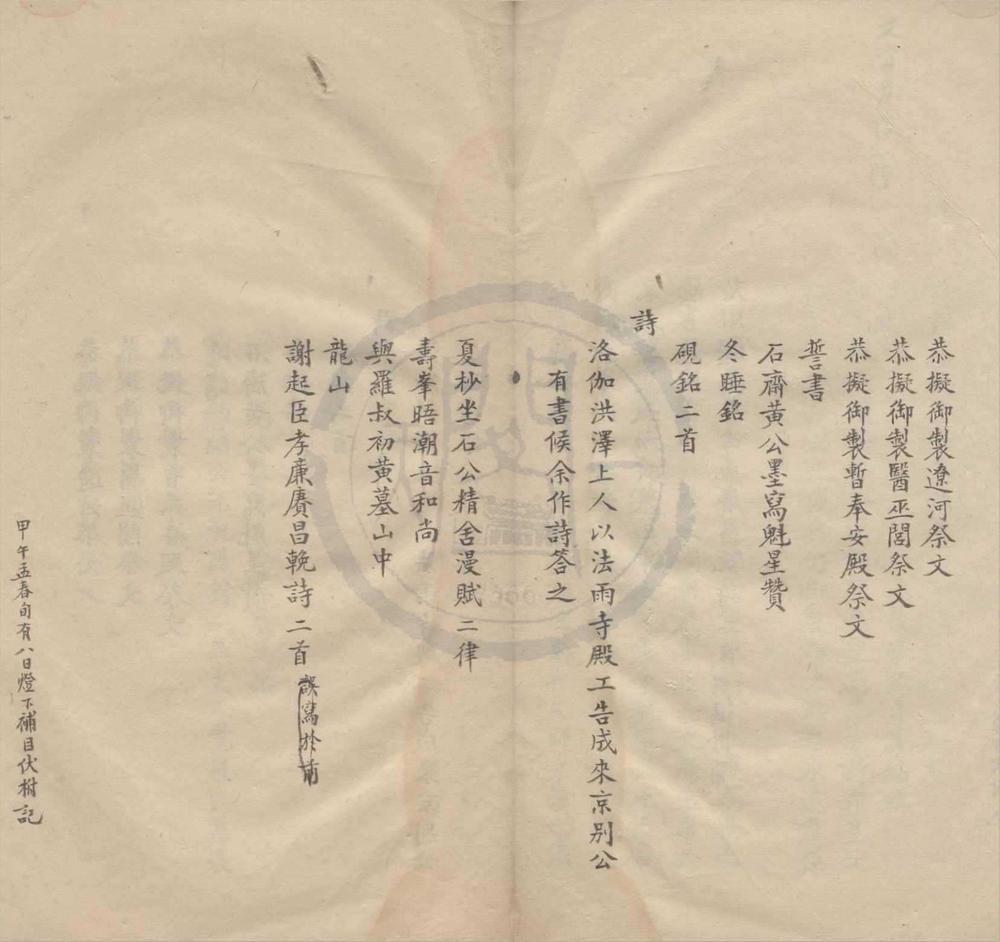 恭擬御製遼河祭文
恭擬御製醫巫閭祭文
恭擬御製暫奉安殿祭文
誓書
石齋黃公墨寫魁星贊
冬睡銘
硯銘二首
詩
洛伽洪澤上人以法雨寺殿工告成來京別公
有書候余作詩答之
夏杪坐石公精舍漫賦二律
壽峯晤潮音和尚
與羅叔初黃墓山中
龍山
謝起臣孝廉賡昌輓詩二首 誤寫於前
甲午孟春旬有八日燈下補目伏樹記